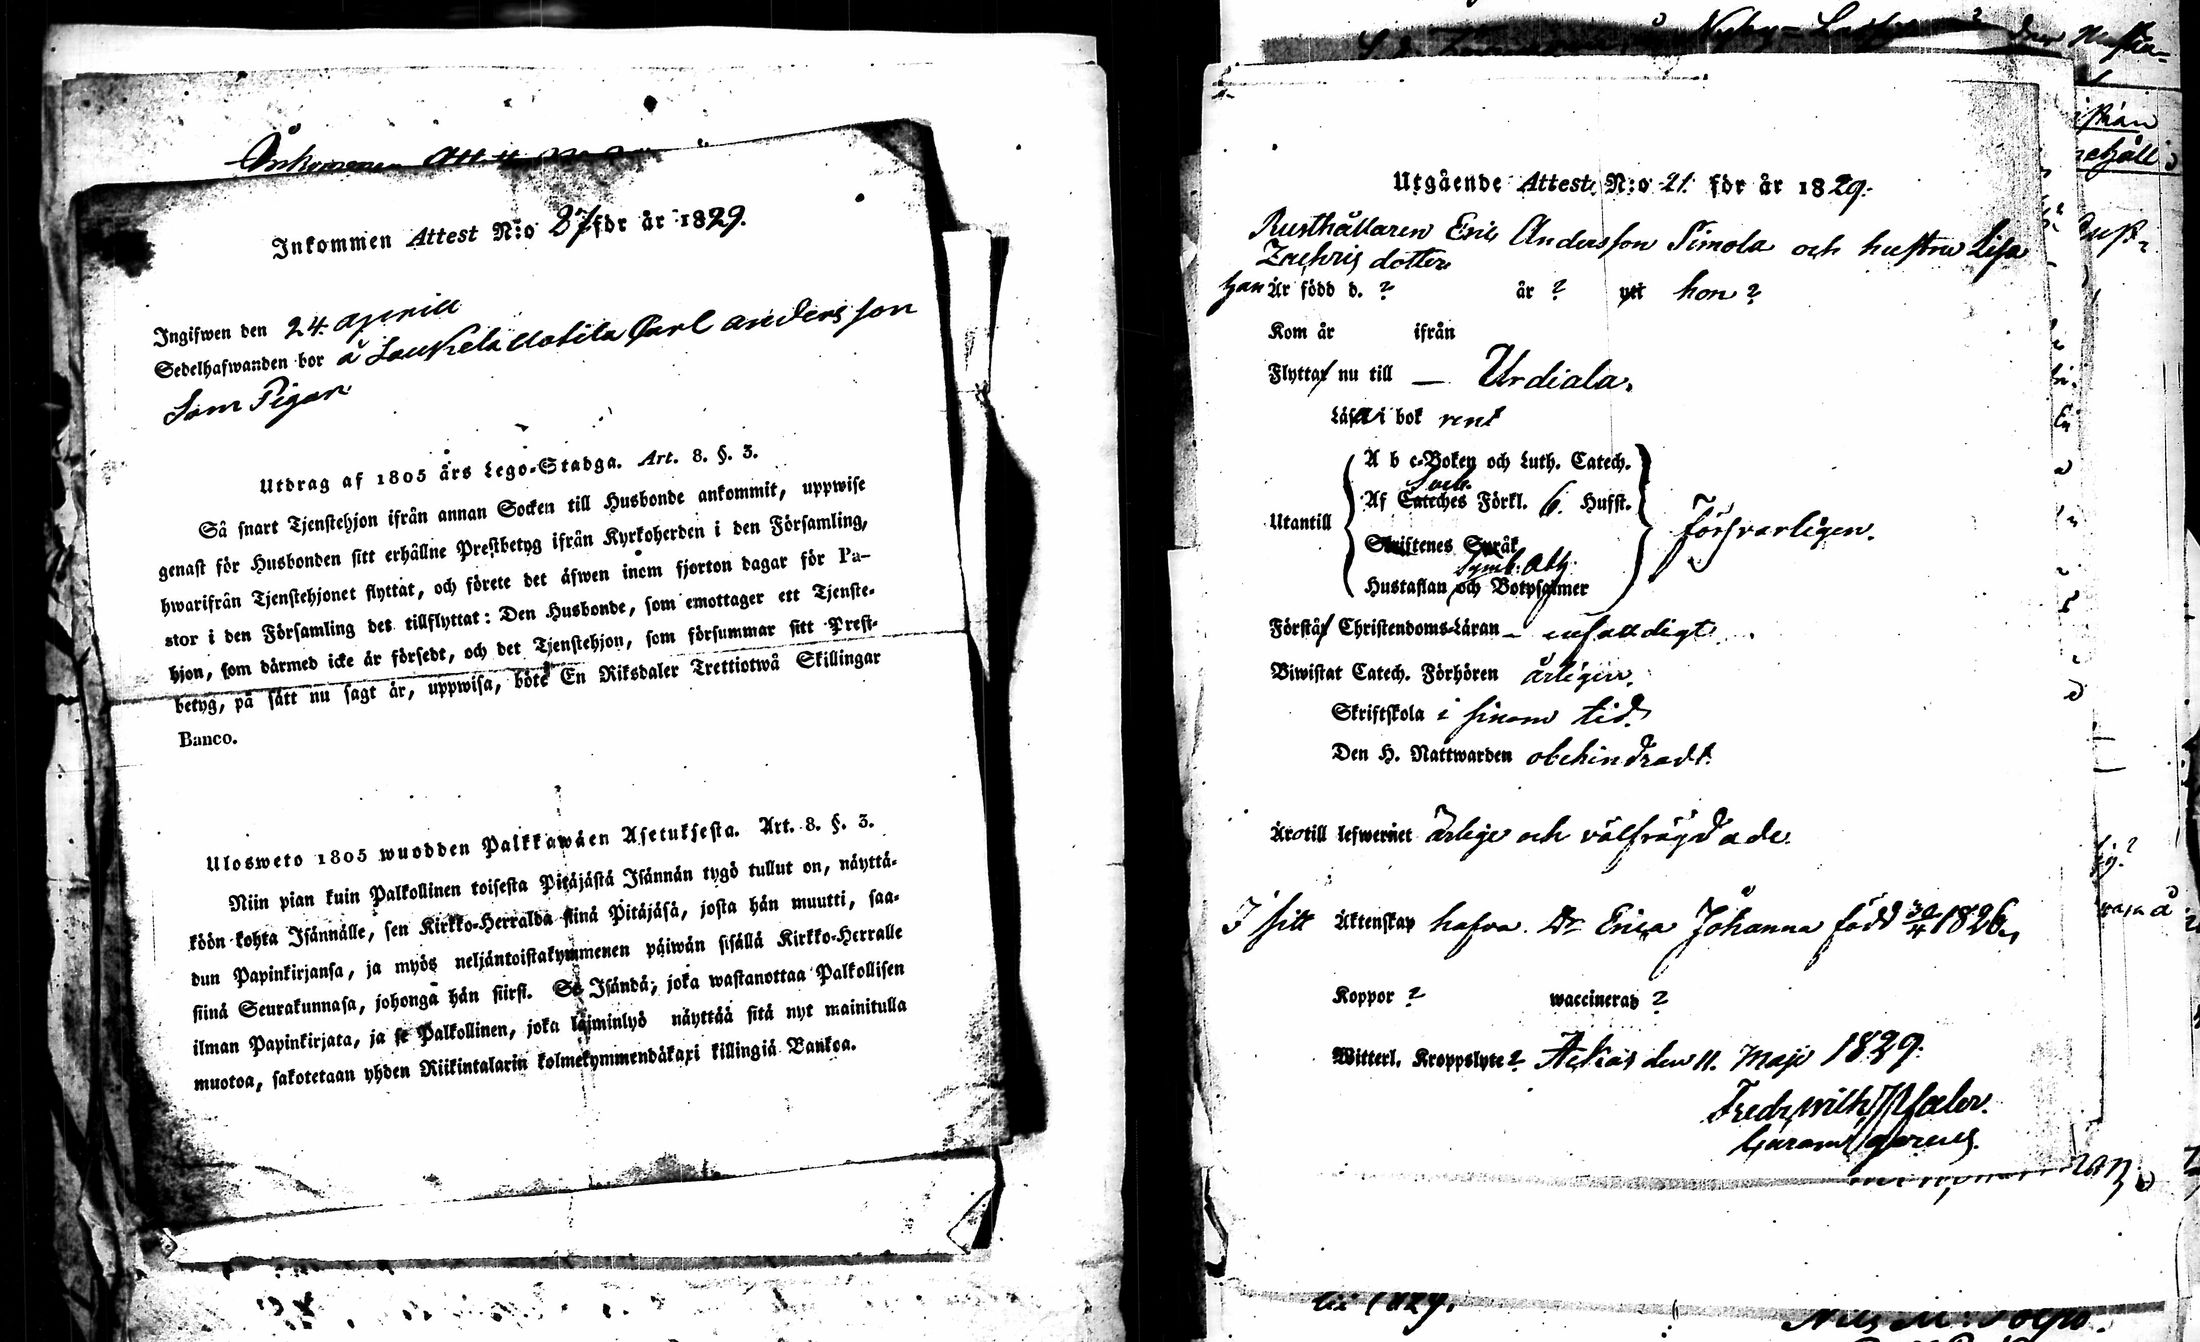 Inkommen Attest N:o 27 för år 1829.
Ingifwen den 24 aprill
Sedelhafwanden bor å Carl andersson
Som Pigan
Utdrag af 1805 års Lego-Stadga. Art. 8. §. 3.
Så snart Tjenstehjon ifrån annan Socken till Husbonde ankommit, uppwise
genast för Husbonden sitt erhållne Prestbetyg ifrån Kyrkoherden i den Församling,
hwarifrån Tjenstehjonet flyttat, och förete det äfwen inom fjorton dagar för Pa-
stor i den Församling det tillflyttat: Den Husbonde, som emottager ett Tjenste-
hjon, som därmed icke är försedt, och det Tjenstehjon, som försummar sitt Prest-
betyg, på sätt nu sagt är, uppwisa, böte En Riksdaler Trettiotwå Skillingar
Banco.
Ulosweto 1805 wuodden Palkkawäen Asetuksesta. Art. 8. §. 3.
Niin pian kuin Palkollinen toisesta Pitäjästä Isännän tygö tullut on, näyttä-
köön kohta Isännälle, sen Kirkko-Herralda siinä Pitäjäsä, josta hän muutti, saa-
dun Papinkirjansa, ja myös neljäntoistakymmenen päiwän sisällä Kirkko-Herralle
siinä Seurakunnasa, johonga hän siirsi. Se Isändä, joka wastanottaa Palkollisen
ilman Papinkirjata, ja se Palkollinen, joka laiminlyö näyttää sitä nyt mainitulla
muotoa, sakotetaan yhden Riikintalarin kolmekymmendäkaxi killingiä Bankoa.
Utgående Attest N:o 21. för år 1829.
Rusthållaren Eric Andersson Simola och hustru Lisa
Zachris dotter
han Är född d. ? år ? hon ?
Kom år ifrån
Flyttar nu till — Urdiala.
Läsa i bok rent
A b c-Boken och Luth. Catech.
Symb.
Af Cateches Förkl. 6. Hufst.
Utantill försvarligen.
Skriftenes Språk
Symb. Ath.
Hustaflan och Botpsalmer
Förstår Christendoms-Läran – enfalldigt
Biwistat Catech. Förhören årligen.
Skriftskola i sinom tid.
Den H. Nattwarden obehindradt.
Äro till lefwernet ärlige och välfrägdade.
I sitt Äktenskap hafva Dr Erica Johanna född 30/4 1826.
Koppor ? waccinerad ?
Witterl. Kroppslyte ? Ackas den 11. Maji 1829.
Fredr. Wilh. Pfaler.